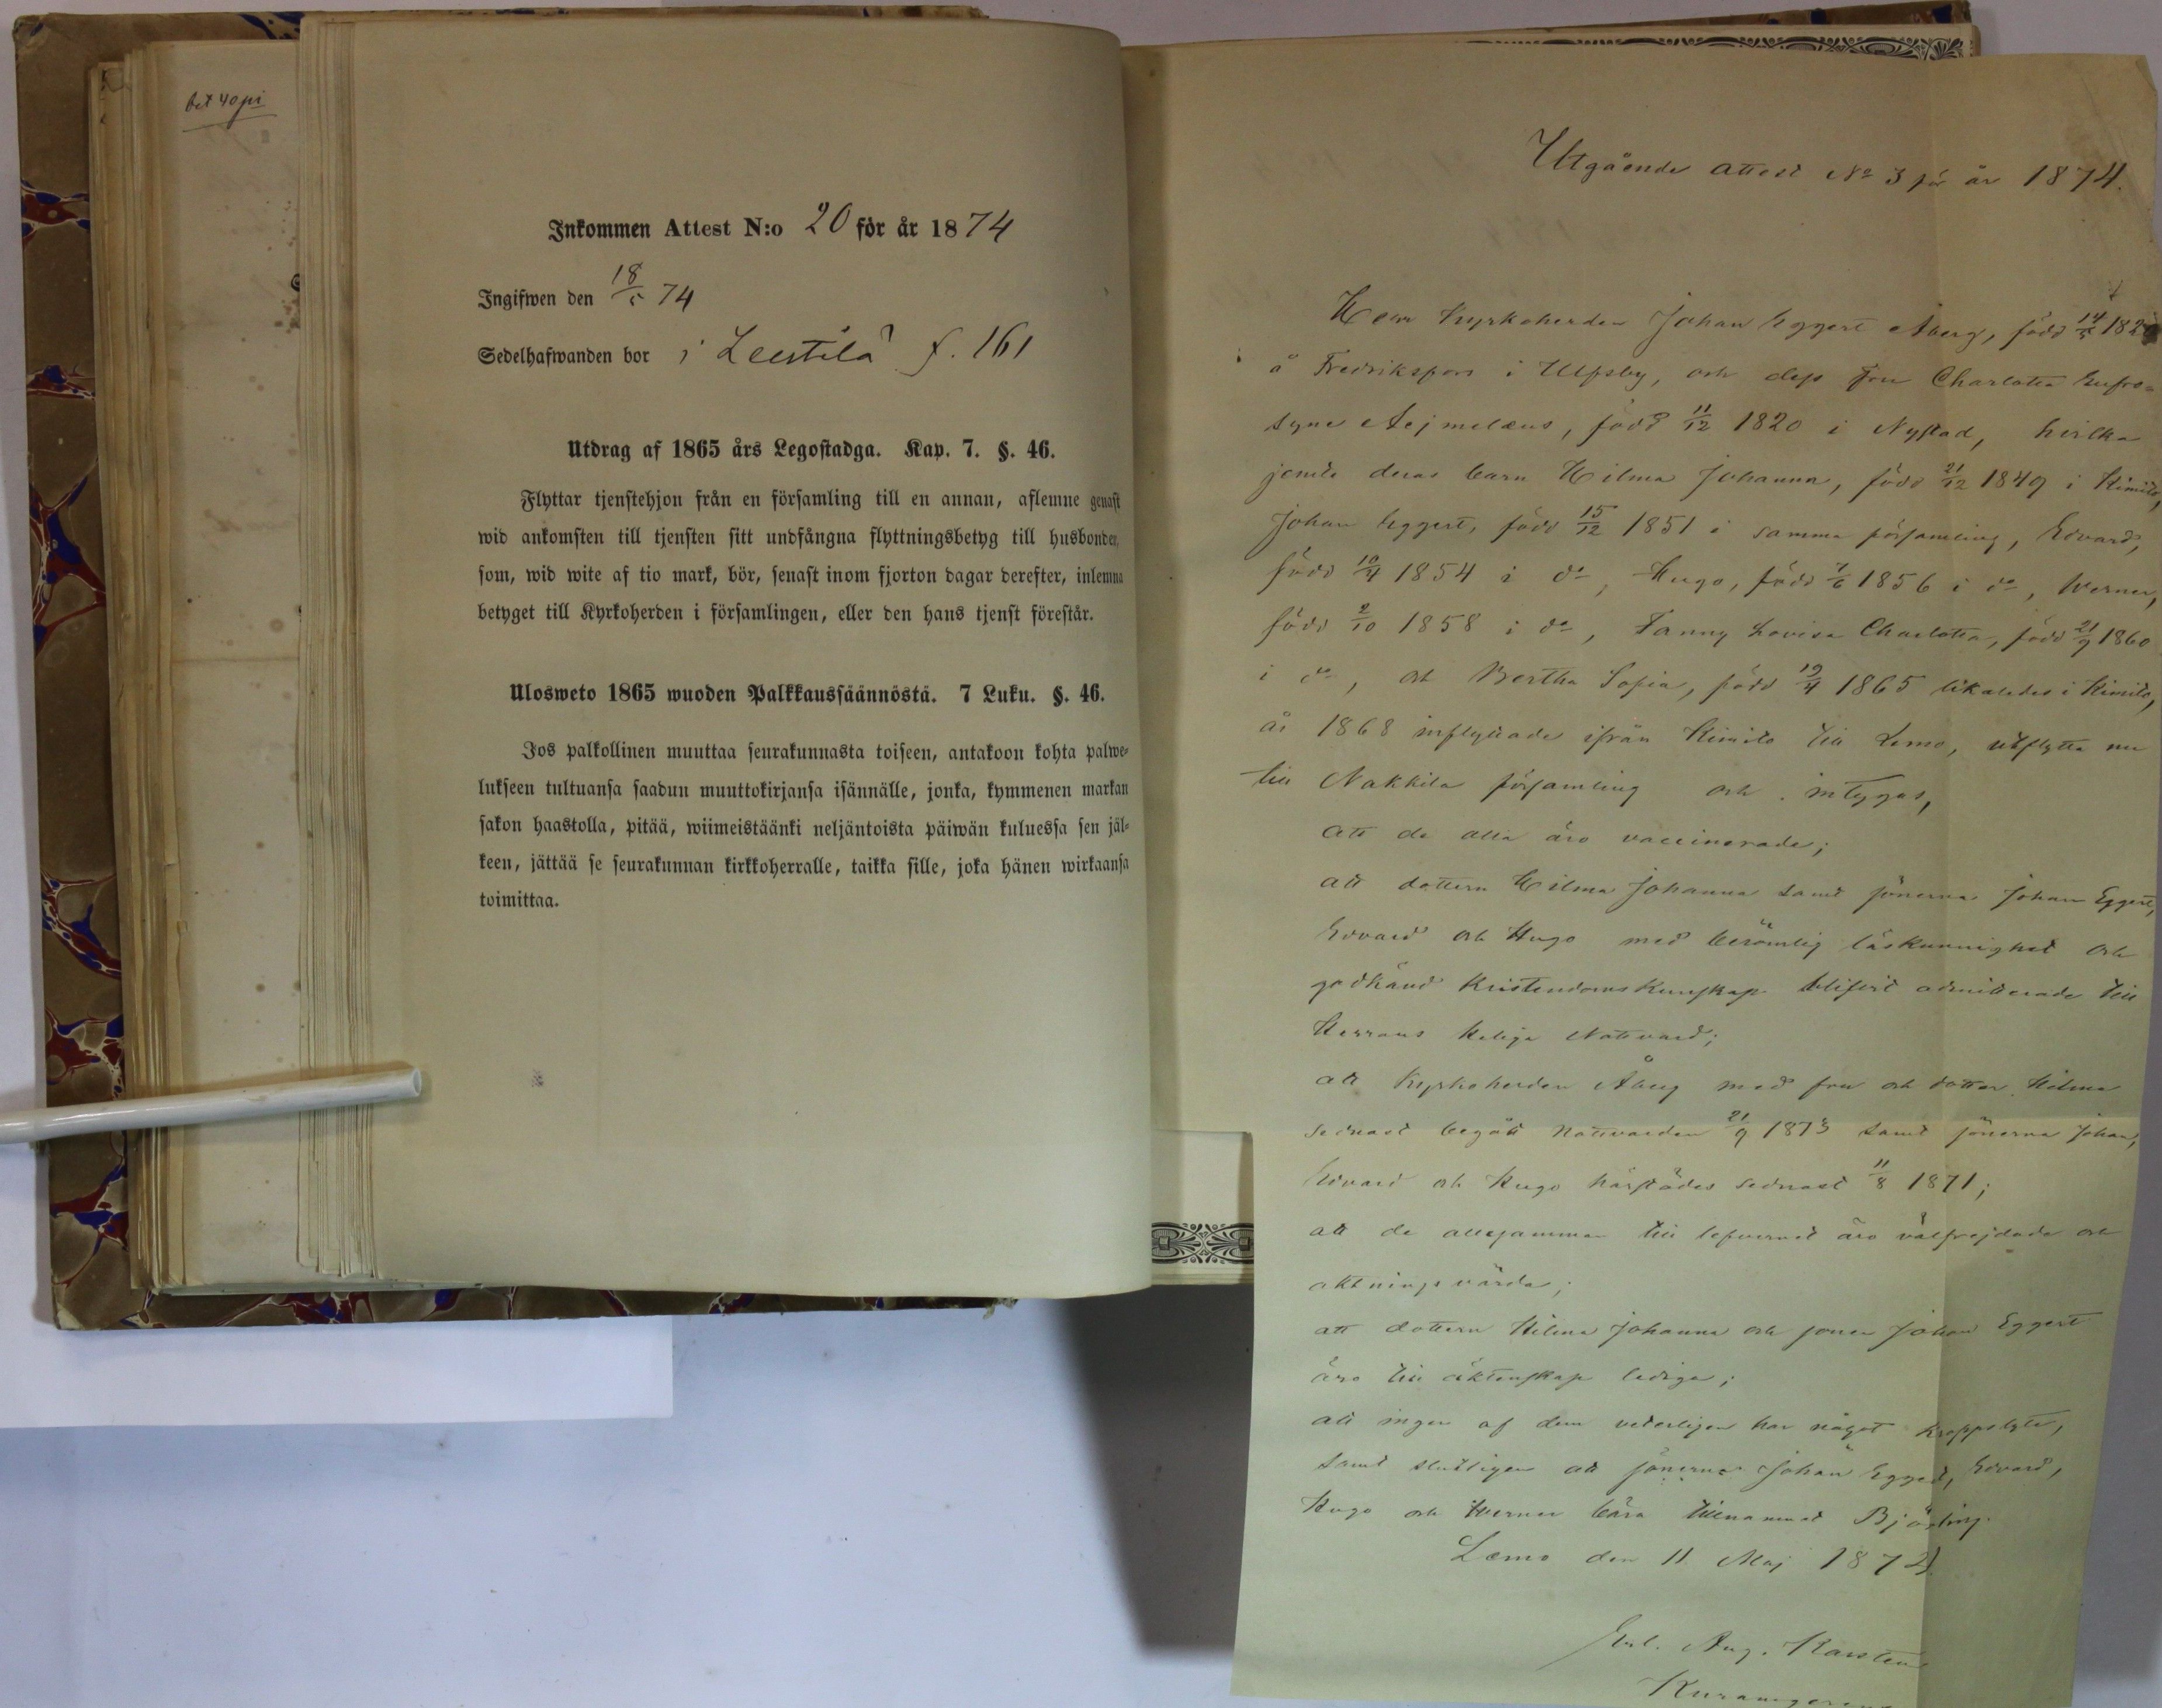 bet 40 pi
Inkommen Attest N:o 20 för år 1874
Ingifwen den 18/5 74
Sedelhafwanden bor i Leistilä f. 161
Utdrag af 1865 års Legostadga. Kap. 7. §. 46.
Flyttar tjenstehjon från en församling till en annan, aflemne genast
wid ankomsten till tjensten sitt undfångna flyttningsbetyg till husbonden,
som, wid wite af tio mark, bör, senast inom fjorton dagar derefter, inlemna
betyget till Kyrkoherden i församlingen, eller den hans tjenst förestår.
Ulosweto 1865 wuoden Palkkaussäännöstä. 7 Luku. §. 46.
Jos palkollinen muuttaa seurakunnasta toiseen, antakoon kohta palwe-
lukseen tultuansa saadun muuttokirjansa isännälle, jonka, kymmenen markan
sakon haastolla, pitää, wiimeistäänki neljäntoista päiwän kuluessa sen jäl-
keen, jättää se seurakunnan kirkkoherralle, taikka sille, joka hänen wirkaansa
toimittaa.
Utgående attest No 3 för år 1874.
Herr Kyrkoherden Johan Eggert Åberg, född 14/5
å Fredriksfors i Ulfsby, och dess Fru Charlotta Eufro=
syne Aejmelæus, född 11/12 1820 i Nystad, hvilka
jemte deras barn Hilma Johanna, född 21/12 1849 i Kimito,
Johan Eggert, född 15/12 1851 i samma församling, Edvard,
född 10/4 1854 i do, Hugo, född 7/6 1856 i do, Werner,
född 2/10 1858 i do, Fanny Lovisa Charlotta, född 21/9 1860
i do, och Bertha Sofia, född 19/4 1865 likaledes i Kimito,
år 1868 inflyttade ifrån Kimito till Lemo, utflytta nu
till Nakkila församling och intygas,
att de alla äro vaccinerade;
att dottern Hilma Johanna samt sönerna Johan Eggert,
Edvard och Hugo med berömlig läskunnighet och
godkänd Kristendomskunskap blifvit admitterade till
Herrans Heliga Nattvard;
att Kyrkoherden Åberg med fru och dotter Hilma
sednast begått Nattvarden 21/9 1873 samt sönerna Johan,
Edvard och Hugo härstädes sednast 11/8 1871;
att de allesamman till lefvernet äro välfrejdade och
aktningsvärda;
att dottern Hilma Johanna och sonen Johan Eggert
äro till äktenskap lediga;
att ingen af dem veterligen har något kroppslyte,
samt slutligen att sönerna Johan Eggert, Edvard,
Hugo och Werner bära tillnamnet Björling.
Lemo den 11 Maj 1874
Aug. Karsten